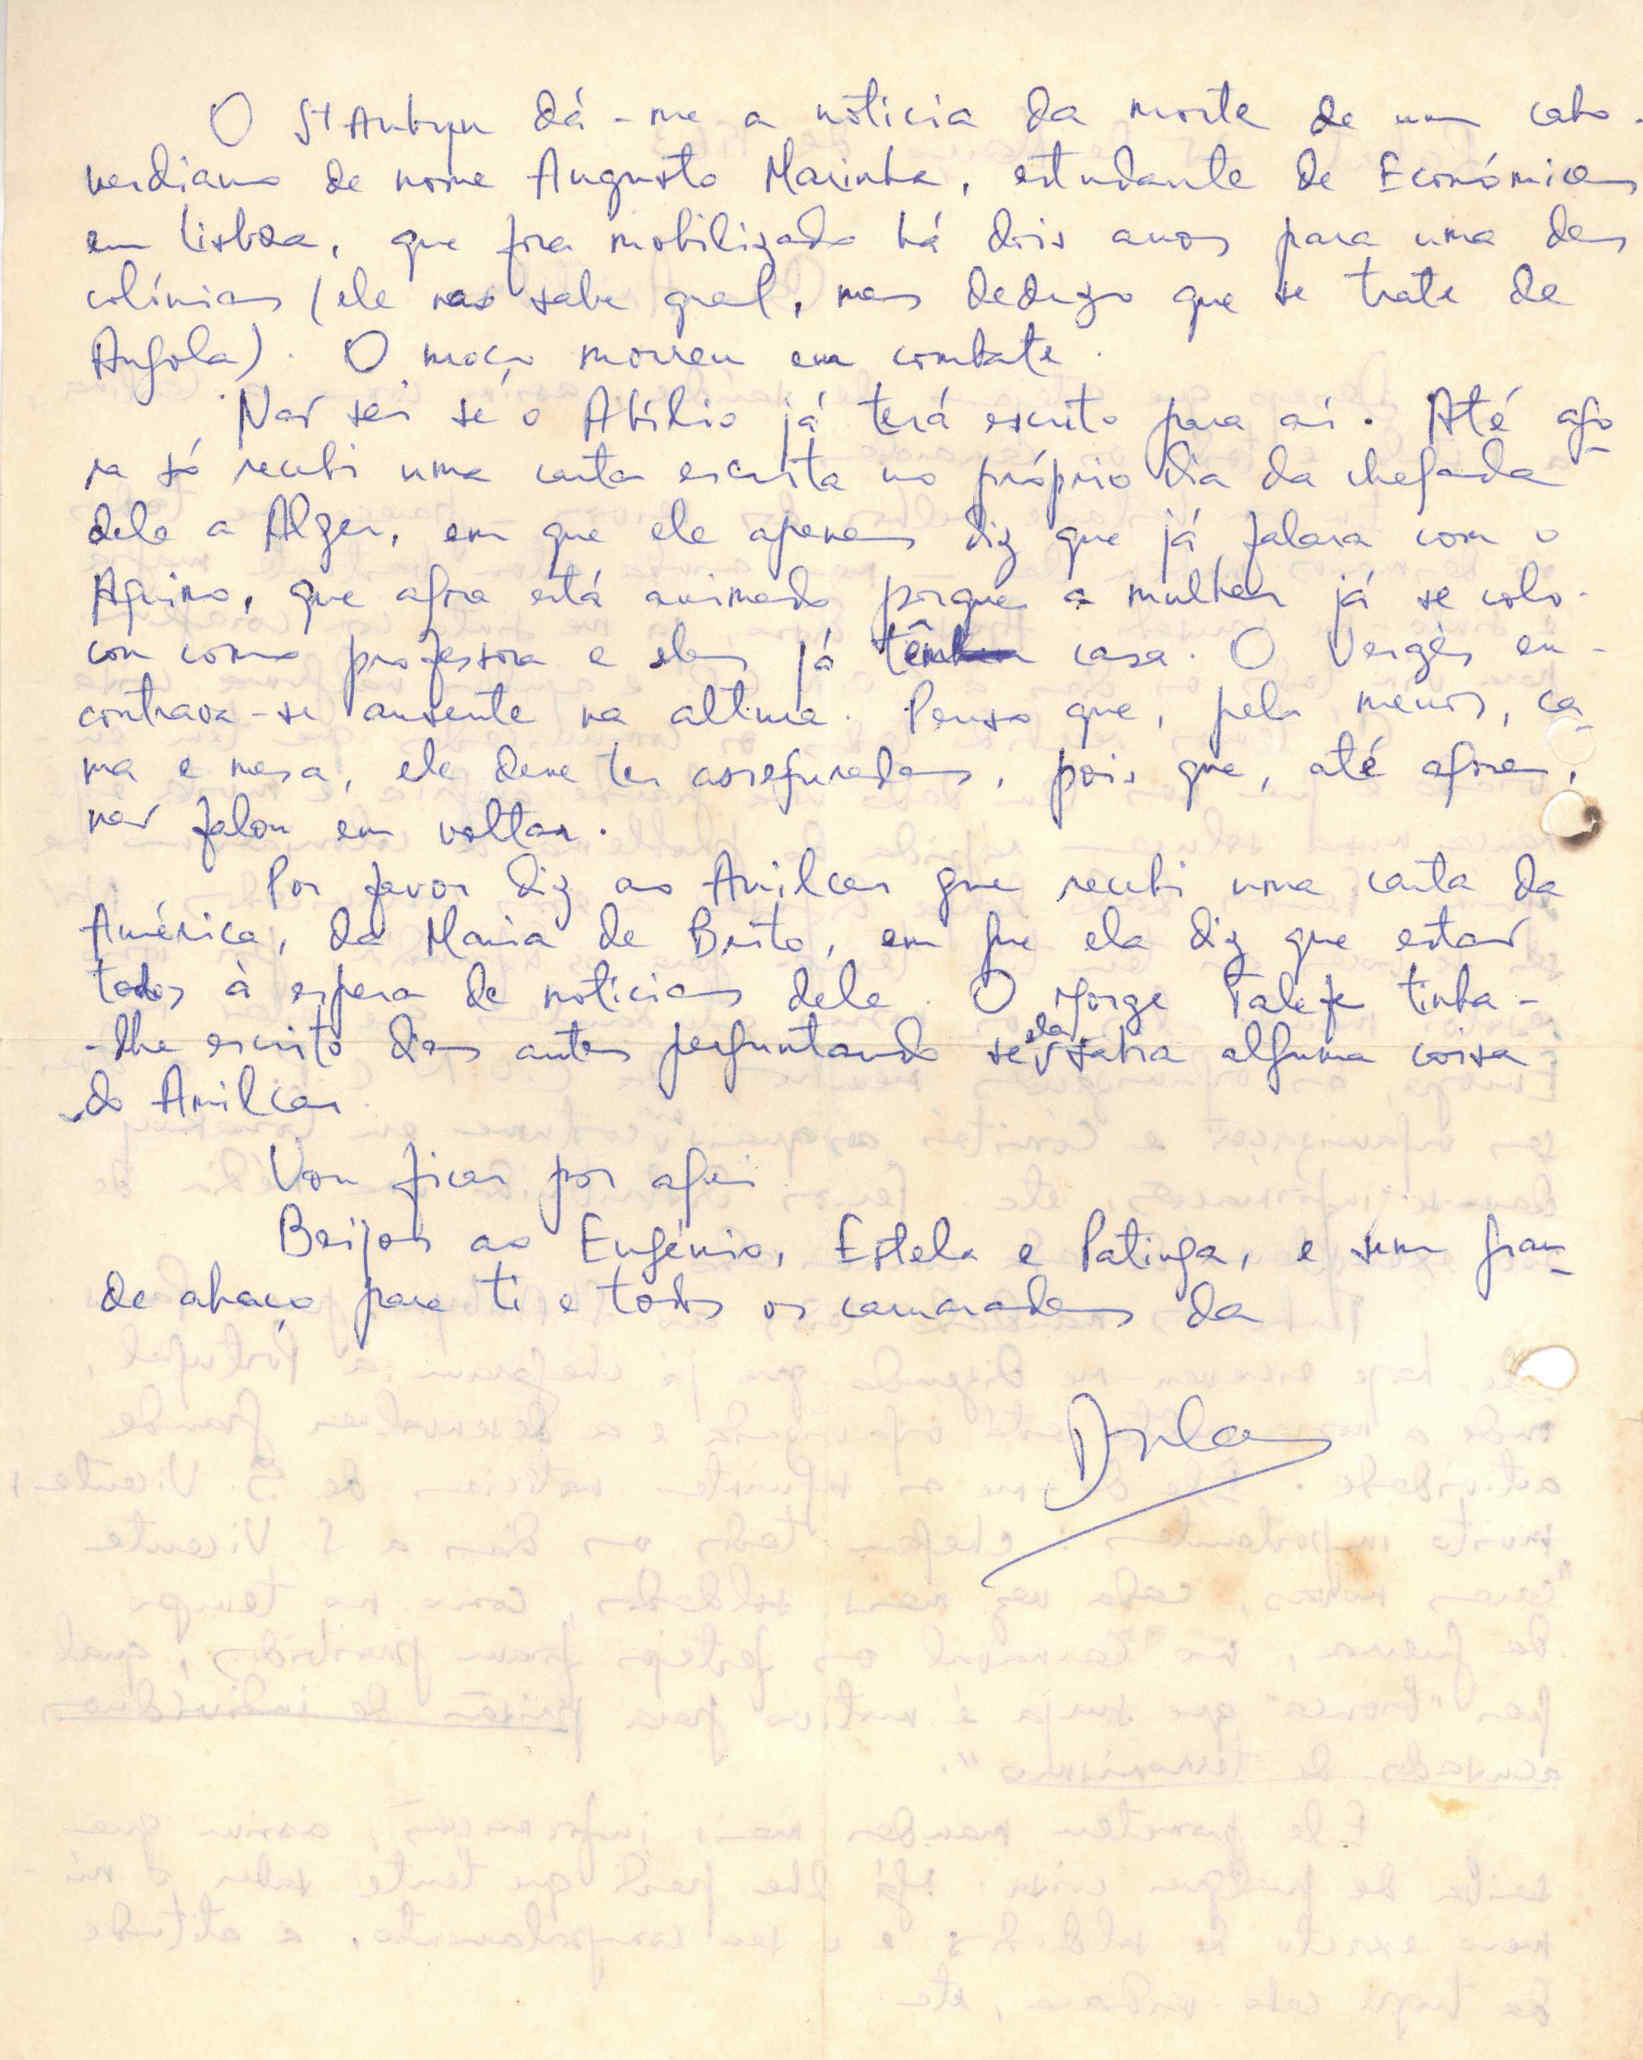 O St Aubyn dá-me a notícia da morte de um cabo-
verdiano de nome Augusto Marinha, estudante de Económicas
em Lisboa, que fora mobilizado há dois anos para uma das
colónias (ele nao sabe qual, mas deduzo que se trate de
Angola). O moço morreu em combate.
Não sei se o Abílio já terá escrito para aí. Até ago-
ra só recebi uma carta escrita no próprio dia da chegada
dele a Alger, em que ele apenas diz que já falara com o
Aquino, que agora está animado porque a mulher já se colo-
cou como professora e eles já têm casa. O Vergès en-
contrava-se ausente na altura. Penso que, pelo menos, ca-
ma e mesa, ele deve ter asseguradas, pois que, até agora,
não falou em voltar.
Por favor diz ao Amilcar que recebi uma carta da
América, da Maria de Brito, em que ela diz que estão
todos à espera de notícias dele. O Jorge tinha-
-lhe escrito dias antes perguntando se ela sabia alguma coisa
do Amilcar.
Vou ficar por aqui.
Beijos ao Eugénio, Estela e Patinga, e um gran-
de abraço para ti e todos os camaradas da
Dulce